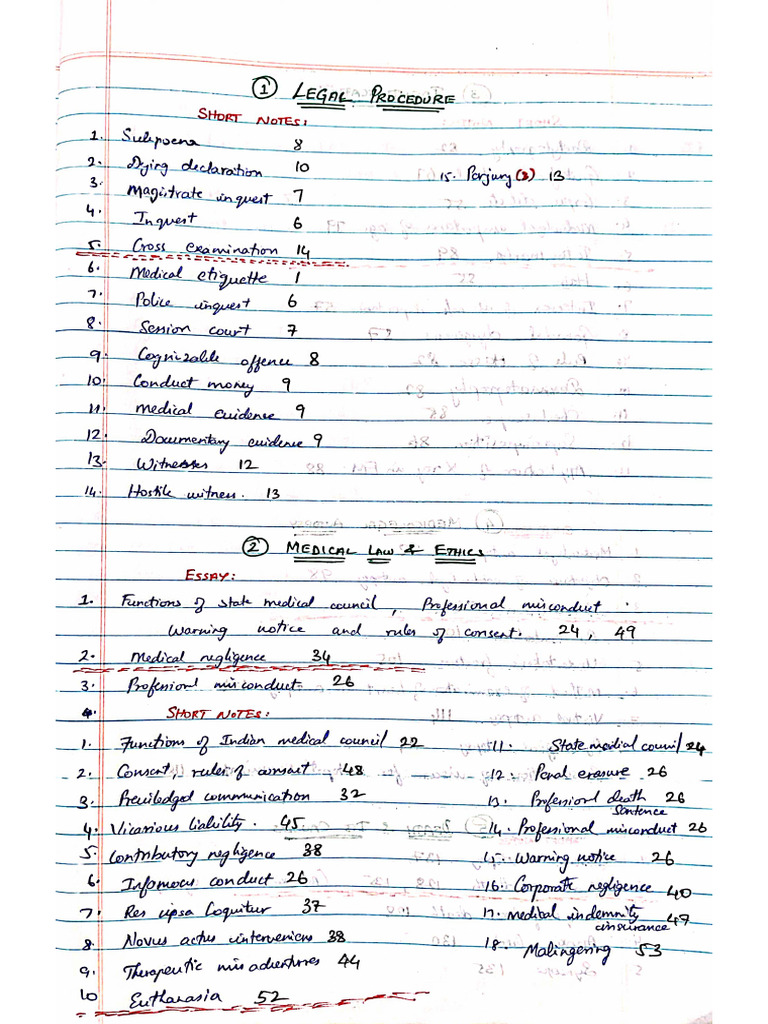 ① LEGAL PROCEDURE
SHORT NOTES:
1. Subpoena 8
2. Dying declaration 10
15. Perjury (2) 13
3. Magistrate inquest 7
4. Inquest 6
5. Cross examination 14
6. Medical etiquette 1
7. Police inquest 6
8. Session court 7
9. Cognizable offence 8
10. Conduct money 9
11. Medical evidence 9
12. Documentary evidence 9
13. Witnesses 12
14. Hostile witness. 13
② MEDICAL LAW & ETHICS
ESSAY:
1. Functions of state medical council, Professional misconduct.
Warning notice and rules of consent. 24, 49
2. Medical negligence 34
3. Professional misconduct 26
4. SHORT NOTES:
1. Functions of Indian medical council 22
2. Consent, rules of consent, 48
3. Previledged communication 32
4. Vicarious liability. 45
5. Contributory negligence 38
6. Infamous conduct 26
7. Res ipsa loquitur 37
8. Novus actus interveniens 38
9. Therapeutic misadventures 44
10 Euthanasia 52
11. State medical council 24
12. Penal erasure 26
13. Professional death 26
sentence
14. Professional misconduct 26
15. Warning notice 26
16. Corporate negligence 40
17. medical indemnity 47
insurance
18. Malingering 53